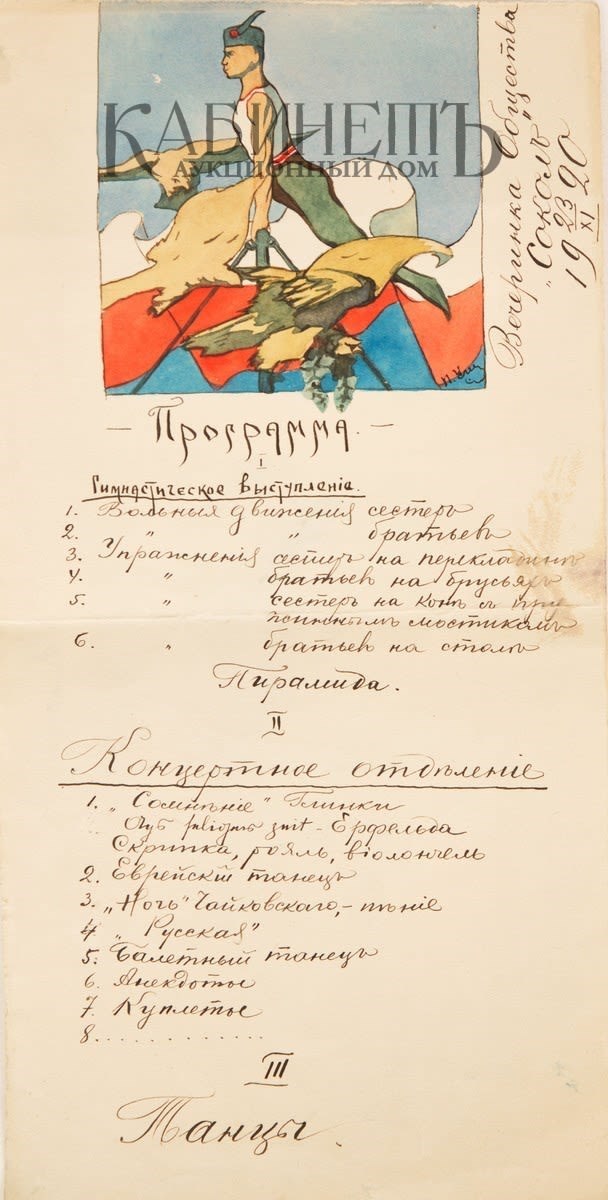 КАБИНЕТЪ
АУКЦИОННЫЙ ДОМ
Вечеринка Общества
"Соколъ"
19 23/XI 20
— Программа. —
I
Гимнастическое выступленіе.
1. Вольныя движенія сестеръ
2. " " братьевъ
3. Упражненія сестеръ на перекладинѣ
4. " братьевъ на брусьяхъ
5. " сестеръ на конѣ съ
мостикомъ
6. " братьевъ на столѣ
Пирамида.
II
Концертное отдѣленіе
1. "Сомнѣніе" Глинки
Aus seliger Zeit - Ерфельда
Скрипка, рояль, віолончель
2. Еврейскій танецъ
3. "Ночь" Чайковскаго, - пѣніе
4 "Русская"
5. Балетный танецъ
6. Анекдоты
7. Куплеты
8. . . . . . . . . . . . .
III
Танцы.